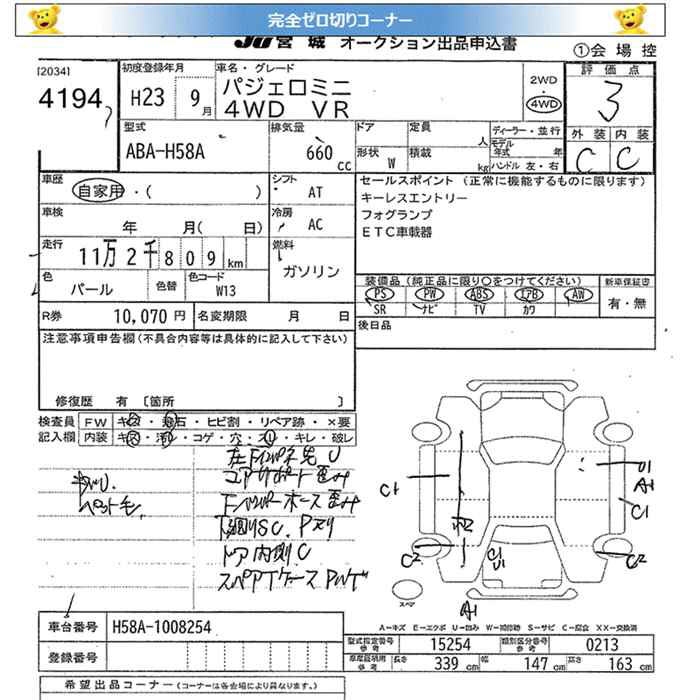 完全ゼロ切りコーナー
JU 宮城 オークション出品申込書
①会場控
[2034]
4194
初度登録年月
H23 9月
車名・グレード
パジェロミニ
4WD VR
2WD
4WD
評価点
3
外装 内装
C C
型式
ABA-H58A
排気量
660 cc
ドア
定員 人
ディーラー・並行
モデル年式 年
形状 W
積載 kg
ハンドル 左・右
車歴
自家用・( )
シフト
AT
車検
年 月( 日)
冷房
AC
走行
11万2千809km
燃料
ガソリン
色
パール
色替
色コード
W13
R券 10,070円
名変期限 月 日
セールスポイント(正常に機能するものに限ります)
キーレスエントリー
フォグランプ
ETC車載器
装備品(純正品に限り○をつけてください)
PS PW ABS エアB AW
SR ナビ TV カワ
新車保証書
有・無
後日品
注意事項申告欄(不具合内容等は具体的に記入して下さい)
修復歴 有 〔箇所 〕
検査員 FW キズ・飛石・ヒビ割・リペア跡・×要
記入欄 内装 キズ・汚れ・コゲ・穴・スレ・キレ・破レ
ペット毛
コアサポート歪み
下廻りSC. Pヌリ
ドア内側C
C1
C2
C1
U1
U1
A1
C1
C2
A1
スペア
A-キズ E-エクボ U-凹み W-補修跡 S-サビ C-腐食 XX-交換済
車台番号 H58A-1008254
登録番号
型式指定番号 参考 15254
類別区分番号 参考 0213
車庫証明用 参考 長さ 339cm 幅 147cm 高さ 163cm
希望出品コーナー(コーナーは各会場により異なります。)